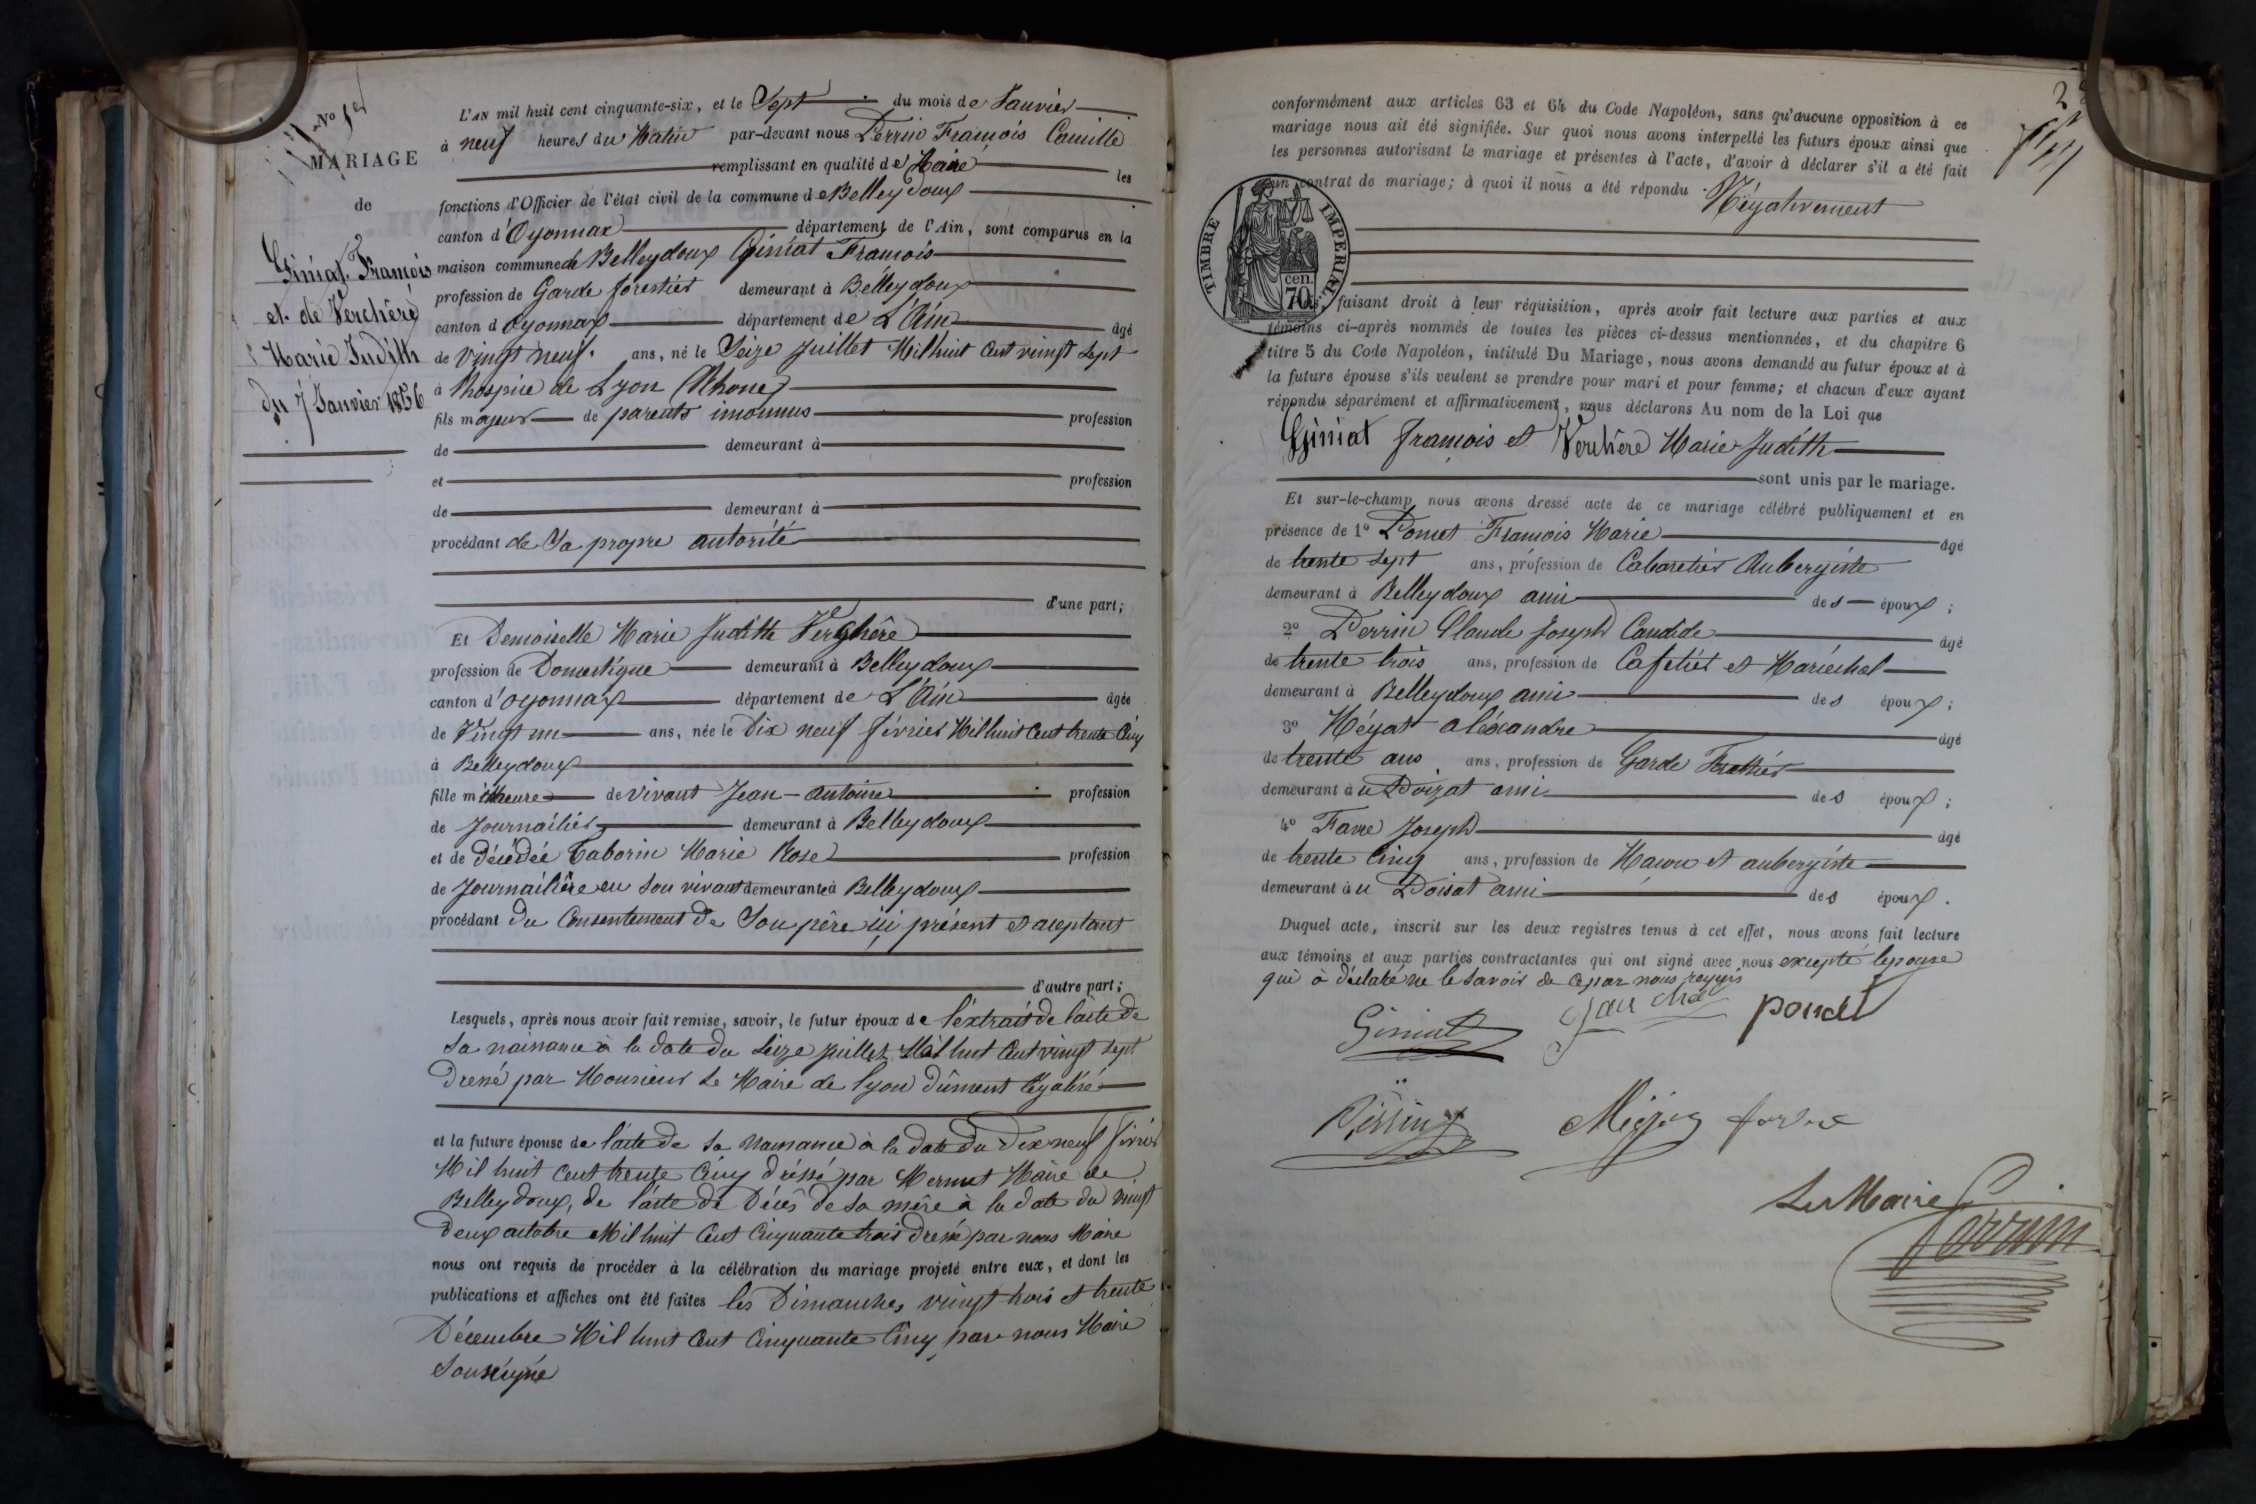 No 1er
MARIAGE
de
Giniat François
et de Verchère
Marie Judith
du 7 Janvier 1856
L'AN mil huit cent cinquante-six, et le Sept du mois de Janvier
à neuf heures du Matin par-devant nous Perrin François Camille
remplissant en qualité de Maire les
fonctions d'Officier de l'état civil de la commune de Belleydoux
canton d'Oyonnax département de l'Ain, sont comparus en la
maison commune de Belleydoux Giniat François
profession de Garde forestier demeurant à Belleydoux
canton d Oyonnax département de L'Ain âgé
de vingt neuf ans, né le Seize Juillet Mil huit Cent vingt Sept
à l'hospice de Lyon (Rhone)
fils majeur de parents inconnus profession
de demeurant à
et profession
de demeurant à
procédant de Sa propre autorité
d'une part;
Et Demoiselle Marie Judith Verghère
profession de Domestique demeurant à Belleydoux
canton d'oyonnax département de L'Ain âgée
de Vingt un ans, née le Dix neuf février Mil huit Cent trente Cinq
à Belleydoux
fille mineure de vivant Jean-antoine profession
de Journailier demeurant à Belleydoux
et de décédée Taborin Marie Rose profession
de Journailière en Son vivant demeurante à Belleydoux
procédant du Consentement de Son père ici présent et aceptant
d'autre part;
Lesquels, après nous avoir fait remise, savoir, le futur époux de l'extrait de l'acte de
Sa naissance à la date du Seize juillet Mil huit Cent vingt Sept
dressé par Monsieur Le Maire de Lyon dûment légalisé
et la future épouse de l'acte de Sa Naissance à la date du Dix neuf février
Mil huit Cent trente Cinq dréssé par Mermet Maire de
Belleydoux, de l'acte de Décès de Sa mère à la date du vingt
deux octobre Mil huit Cent Cinquante trois dressé par nous Maire
nous ont requis de procéder à la célébration du mariage projeté entre eux, et dont les
publications et affiches ont été faites les Dimanches vingt trois et trente
Décembre Mil huit Cent Cinquante Cinq par nous Maire
Sousigné
conformément aux articles 63 et 64 du Code Napoléon, sans qu'aucune opposition à ce
mariage nous ait été signifiée. Sur quoi nous avons interpellé les futurs époux ainsi que
les personnes autorisant le mariage et présentes à l'acte, d'avoir à déclarer s'il a été fait
un contrat de mariage; à quoi il nous a été répondu Négativement
TIMBRE IMPERIAL
cen.
70
faisant droit à leur réquisition, après avoir fait lecture aux parties et aux
témoins ci-après nommés de toutes les pièces ci-dessus mentionnées, et du chapitre 6
titre 5 du Code Napoléon, intitulé Du Mariage, nous avons demandé au futur époux et à
la future épouse s'ils veulent se prendre pour mari et pour femme; et chacun d'eux ayant
répondu séparément et affirmativement, nous déclarons Au nom de la Loi que
Giniat françois et Verchère Marie Judith
sont unis par le mariage.
Et sur-le-champ nous avons dressé acte de ce mariage célébré publiquement et en
présence de 1º Poncet François Marie âgé
de trente Sept ans, profession de Cabaretier Aubergiste
demeurant à Belleydoux ami des époux;
2º Perrin Claude Joseph Candide âgé
de trente trois ans, profession de Cafetier et Maréchal
demeurant à Belleydoux ami des époux;
3º Mégat aléxandre âgé
de trente ans ans, profession de Garde Forestier
demeurant à u Poizat ami des époux;
4º Favre Joseph âgé
de trente Cinq ans, profession de Maçon et aubergiste
demeurant à u Poisat ami des époux.
Duquel acte, inscrit sur les deux registres tenus à cet effet, nous avons fait lecture
aux témoins et aux parties contractantes qui ont signé avec nous excepté lepouse
qui à déclaré ne le Savoir de ce par nous requis
Giniat
poncet
Perrin
favre
Le Maire
Perrin